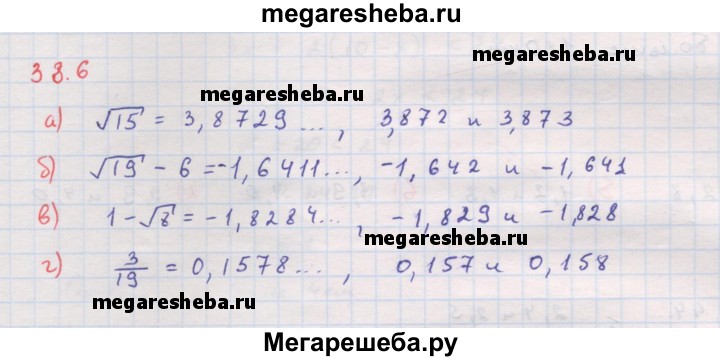 megaresheba.ru
38.6
megaresheba.ru
а) √15 = 3,8729..., 3,872 и 3,873
б) √19 - 6 = -1,6411..., -1,642 и -1,641
в) 1 - √8 = -1,8284..., -1,829 и -1,828
megaresheba.ru
г) 3/19 = 0,1578..., 0,157 и 0,158
megaresheba.ru
Мегарешеба.ру